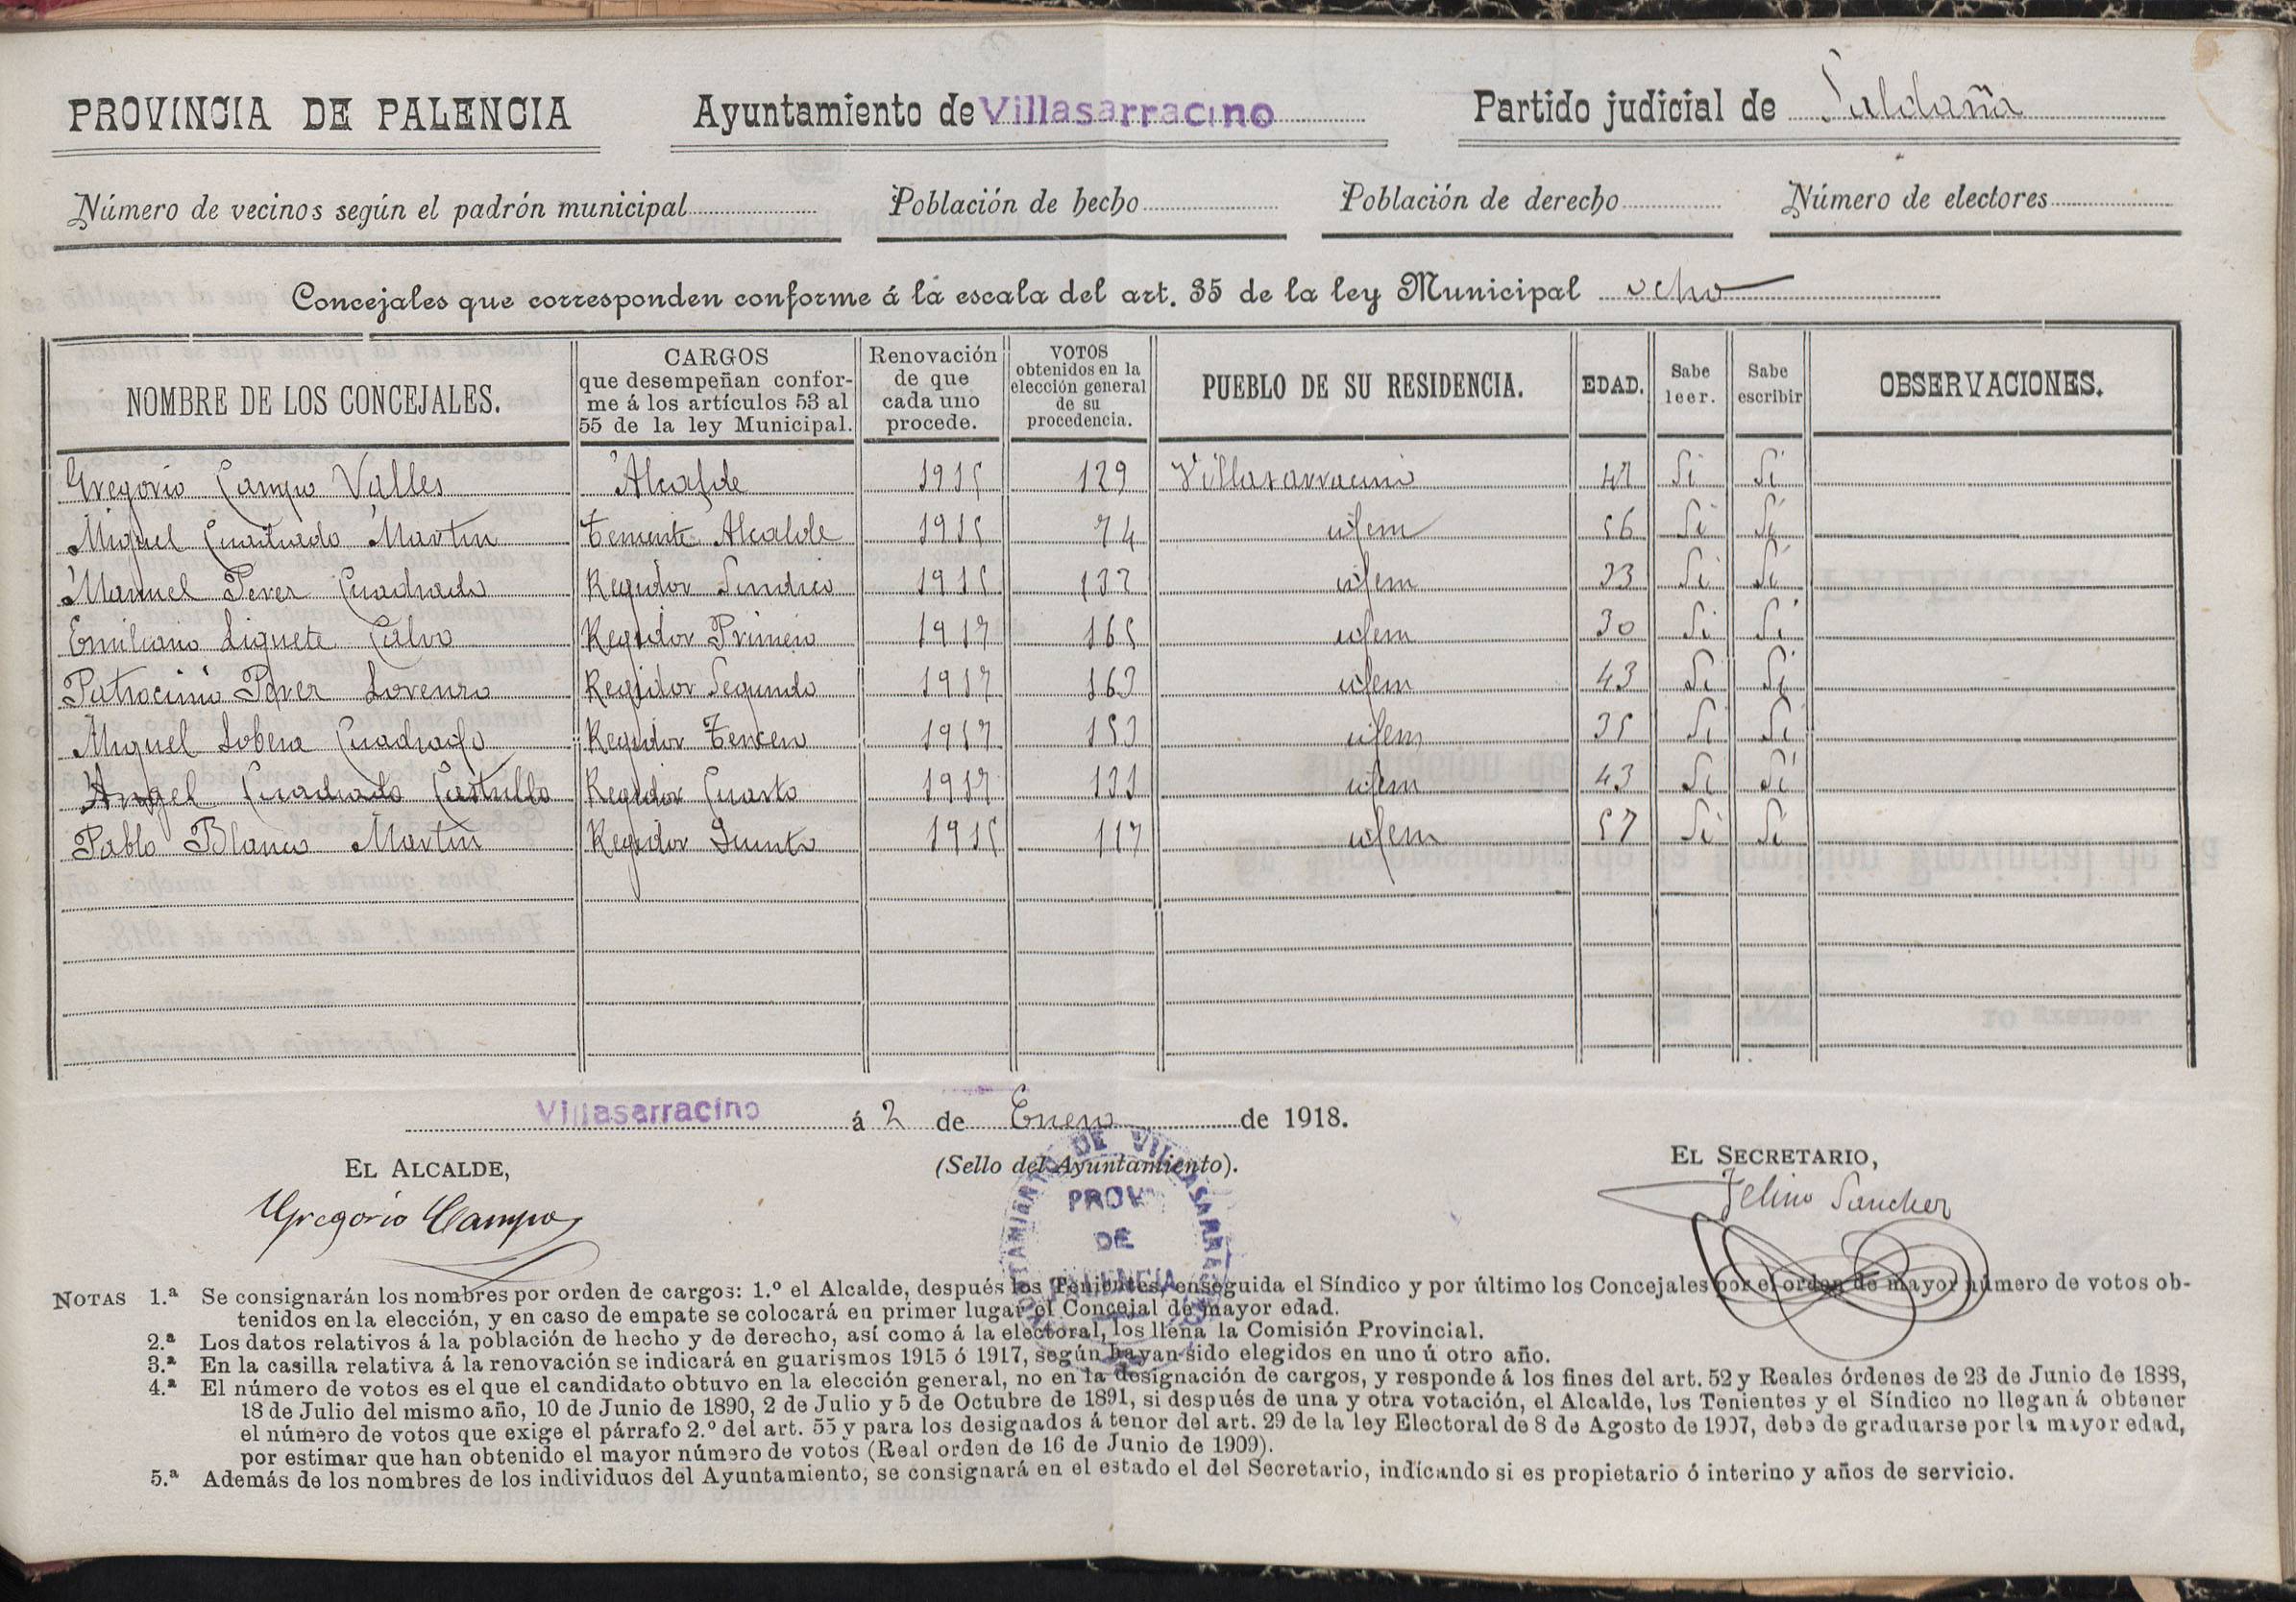 PROVINCIA DE PALENCIA Ayuntamiento de Villasarracino Partido judicial de Saldaña
Número de vecinos según el padrón municipal Población de hecho Población de derecho Número de electores
Concejales que corresponden conforme á la escala del art. 35 de la ley Municipal ocho
NOMBRE DE LOS CONCEJALES. CARGOS que desempeñan conforme á los artículos 53 al 55 de la ley Municipal. Renovación de que cada uno procede. VOTOS obtenidos en la elección general de su procedencia. PUEBLO DE SU RESIDENCIA. EDAD. Sabe leer. Sabe escribir OBSERVACIONES.
Gregorio Campo Valles Alcalde 1915 129 Villasarracino Si Si
Miguel Cuadrado Martin Teniente Alcalde 1915 74 idem 56 Si Si
Manuel Perez Cuadrado Regidor Sindico 1915 132 idem 33 Si Si
Emiliano Liquete Calvo Regidor Primero 1917 165 idem 30 Si Si
Patrocinio Perez Lorenzo Regidor Segundo 1917 163 idem 43 Si Si
Miguel Lobera Cuadrado Regidor Tercero 1917 153 idem 35 Si Si
Angel Cuadrado Castrillo Regidor Cuarto 1917 131 idem 43 Si Si
Pablo Blanco Martin Regidor Quinto 1915 117 idem 57 Si Si
Villasarracino á 2 de Enero de 1918.
EL ALCALDE, (Sello del Ayuntamiento). EL SECRETARIO,
Gregorio Campo Felino Sanchez
AYUNTAMIENTO DE VILLASARRACINO
PROV.
DE
PALENCIA
NOTAS 1.ª Se consignarán los nombres por orden de cargos: 1.º el Alcalde, después los Tenientes, enseguida el Síndico y por último los Concejales por el orden de mayor número de votos ob-
tenidos en la elección, y en caso de empate se colocará en primer lugar el Concejal de mayor edad.
2.ª Los datos relativos á la población de hecho y de derecho, así como á la electoral, los llena la Comisión Provincial.
3.ª En la casilla relativa á la renovación se indicará en guarismos 1915 ó 1917, según hayan sido elegidos en uno ú otro año.
4.ª El número de votos es el que el candidato obtuvo en la elección general, no en la designación de cargos, y responde á los fines del art. 52 y Reales órdenes de 23 de Junio de 1888,
18 de Julio del mismo año, 10 de Junio de 1890, 2 de Julio y 5 de Octubre de 1891, si después de una y otra votación, el Alcalde, los Tenientes y el Síndico no llegan á obtener
el número de votos que exige el párrafo 2.º del art. 55 y para los designados á tenor del art. 29 de la ley Electoral de 8 de Agosto de 1907, debe de graduarse por la mayor edad,
por estimar que han obtenido el mayor número de votos (Real orden de 16 de Junio de 1909).
5.ª Además de los nombres de los individuos del Ayuntamiento, se consignará en el estado el del Secretario, indicando si es propietario ó interino y años de servicio.